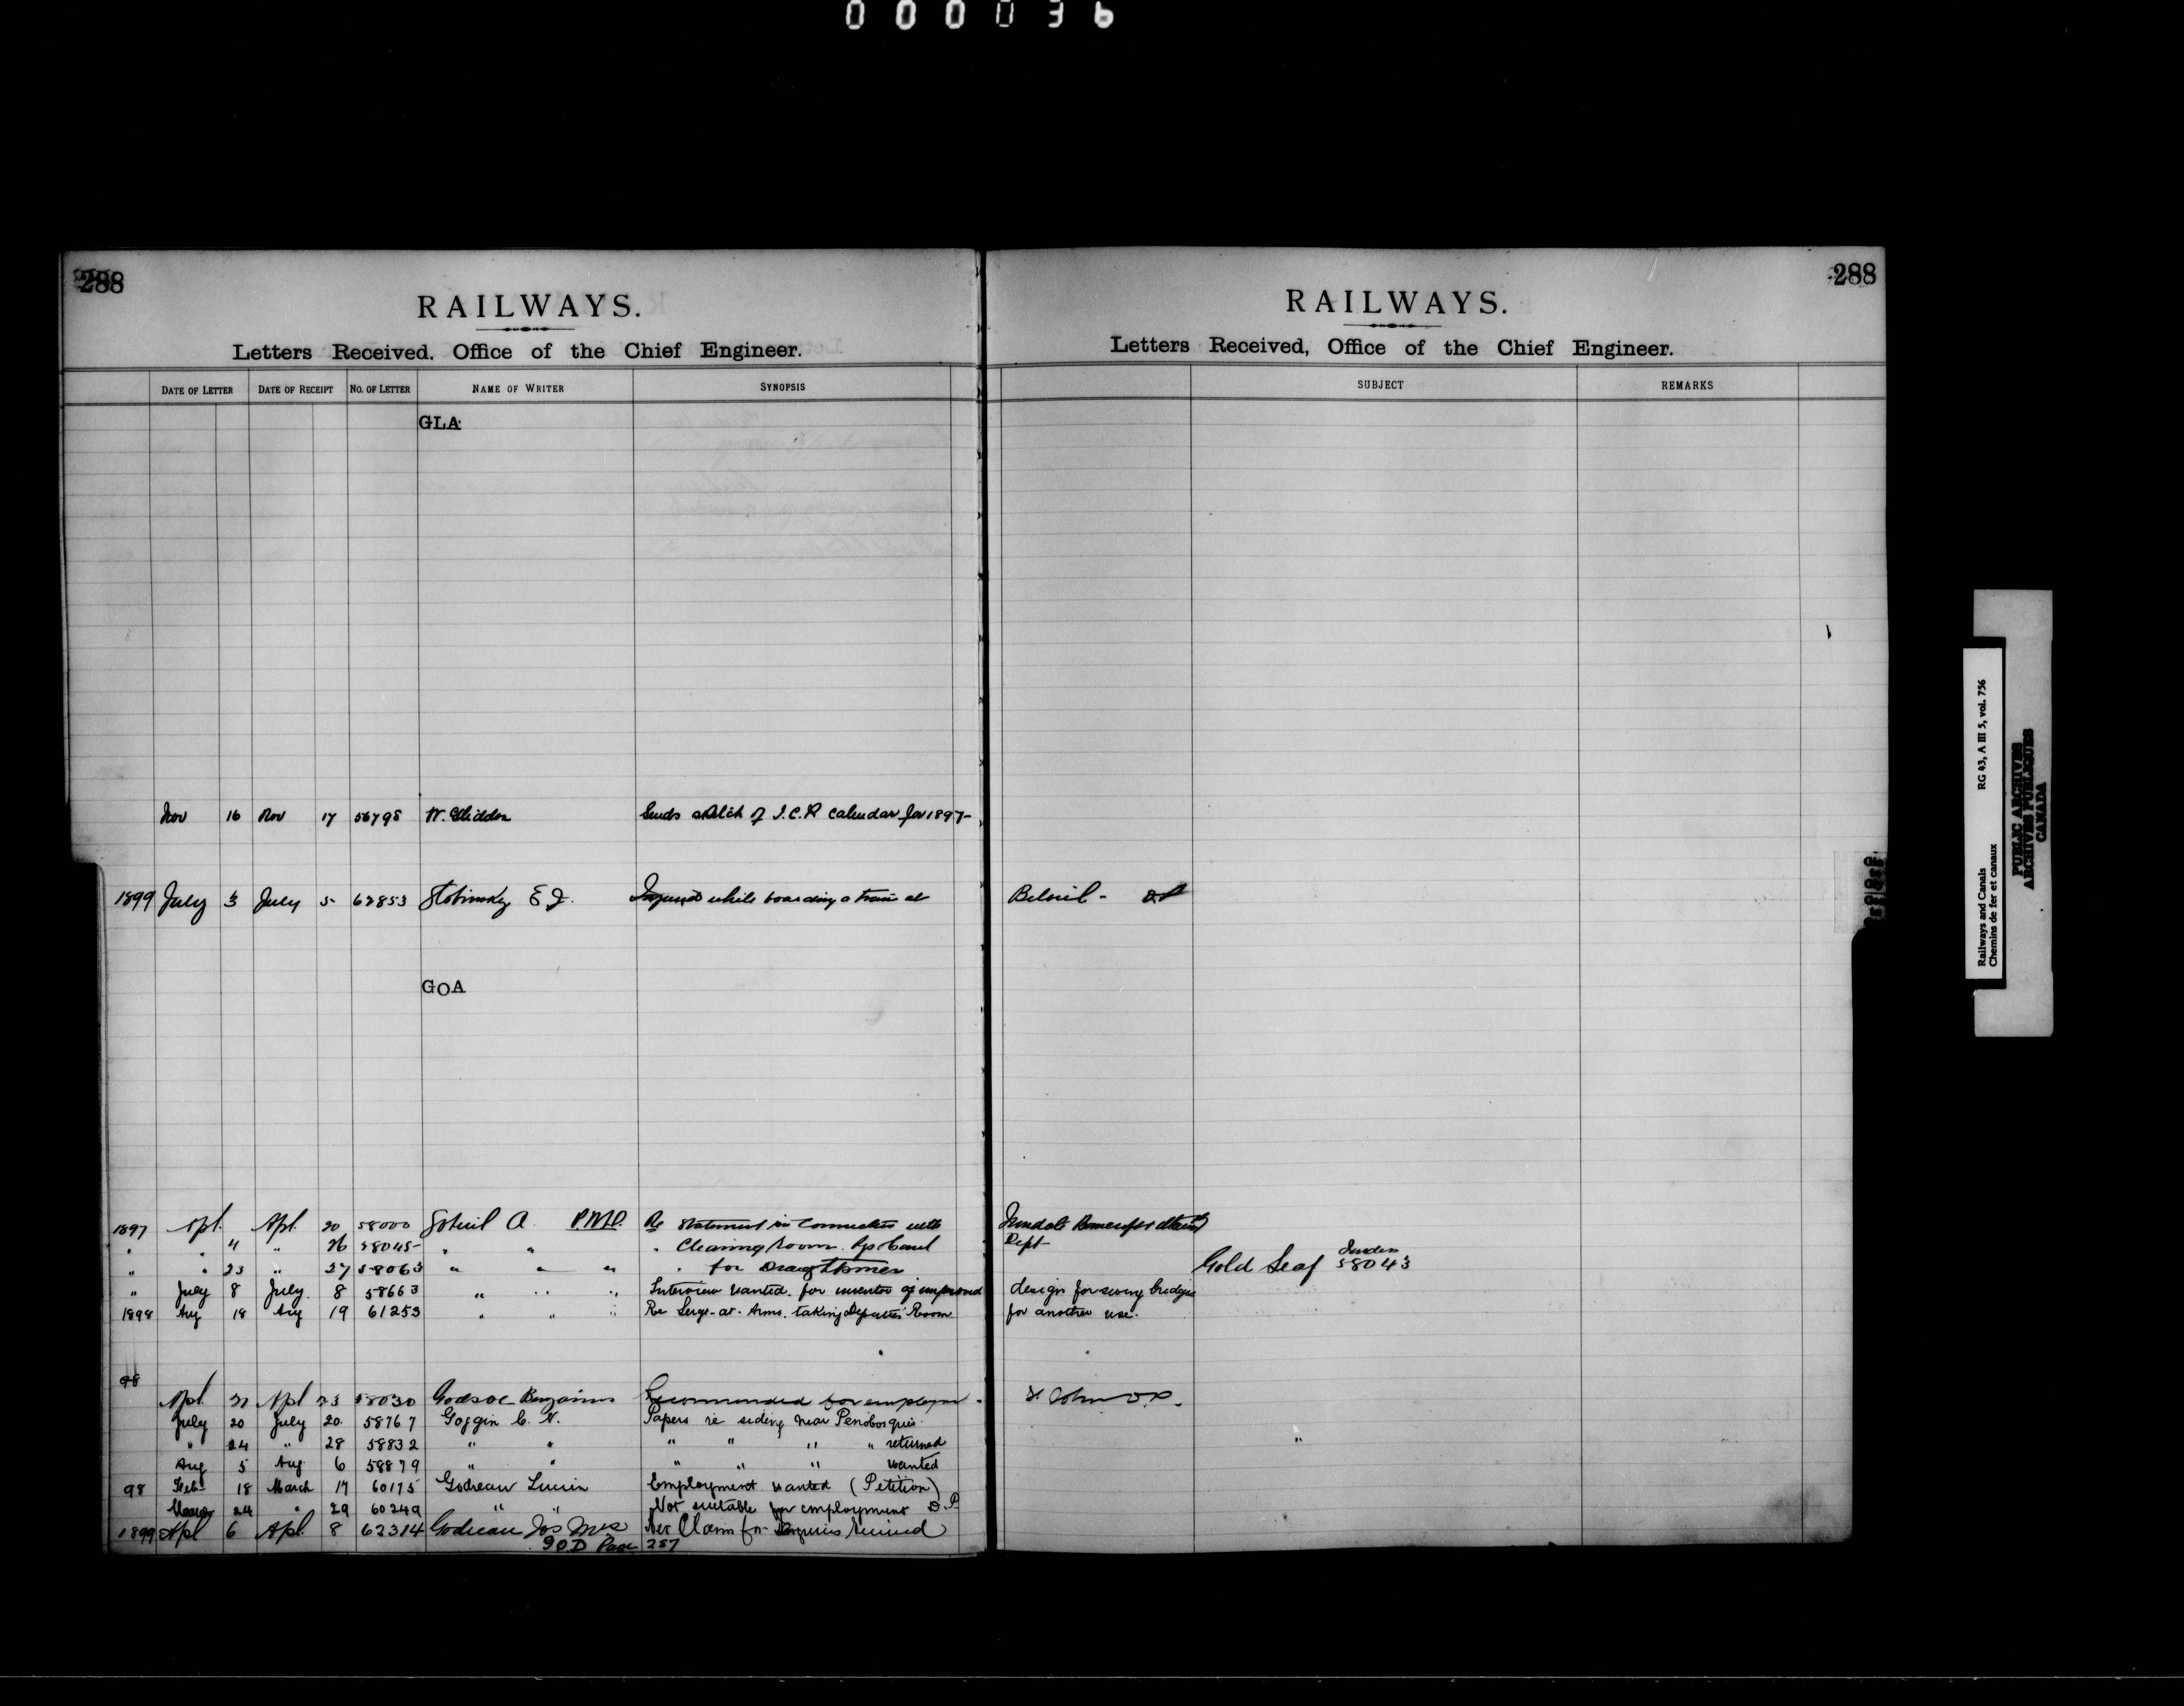 000036
288
RAILWAYS.
Letters Received, Office of the Chief Engineer.
DATE OF LETTER DATE OF RECEIPT No. OF LETTER NAME OF WRITER SYNOPSIS
GLA
Nov 16 Nov 17 56798 W. Glidden Sends sketch of I.C.R calendar for 1897-
1899 July 3 July 5 62853 E J. Injured while boarding a train at
GOA
1897 Apl. Apl. 20 58000 Gobeil A. Re Statement in connection with
" " 4 " 26 58045 " " " Clearing room
" " 23 " 27 58063 " " " " for Draughtsmen
" July 8 July 8 58663 " " " Interview wanted for inventor of improved
1898 Aug 18 Aug 19 61253 " " " Re Sergt-at-Arms. taking Deputies Room
98
Apl. 21 Apl 23 58030 Godsoe Benjamin Recommended for employm
July 20 July 20 58767 Goggin C. N. Papers re siding near Penobsquis
" 24 " 28 58832 " " " " " " returned
Aug 5 Aug 6 58879 " " " " " wanted
98 Feb 18 March 17 60175 Godreau Lucien Employment wanted (Petition)
24 " 29 60249 " " Not suitable for employment D.P.
1899 Apl 6 Apl. 8 62314 Godreau Jos Mrs Her Claim for Injuries received
GOD Page 287
288
RAILWAYS.
Letters Received, Office of the Chief Engineer.
SUBJECT REMARKS
Beloeil -
Dept
Gold Leaf 58043
design for swing bridges
for another use.
St John D.P.
"
Railways and Canals RG 43, A III 5, vol. 756
Chemins de fer et canaux
PUBLIC ARCHIVES
ARCHIVES PUBLIQUES
CANADA